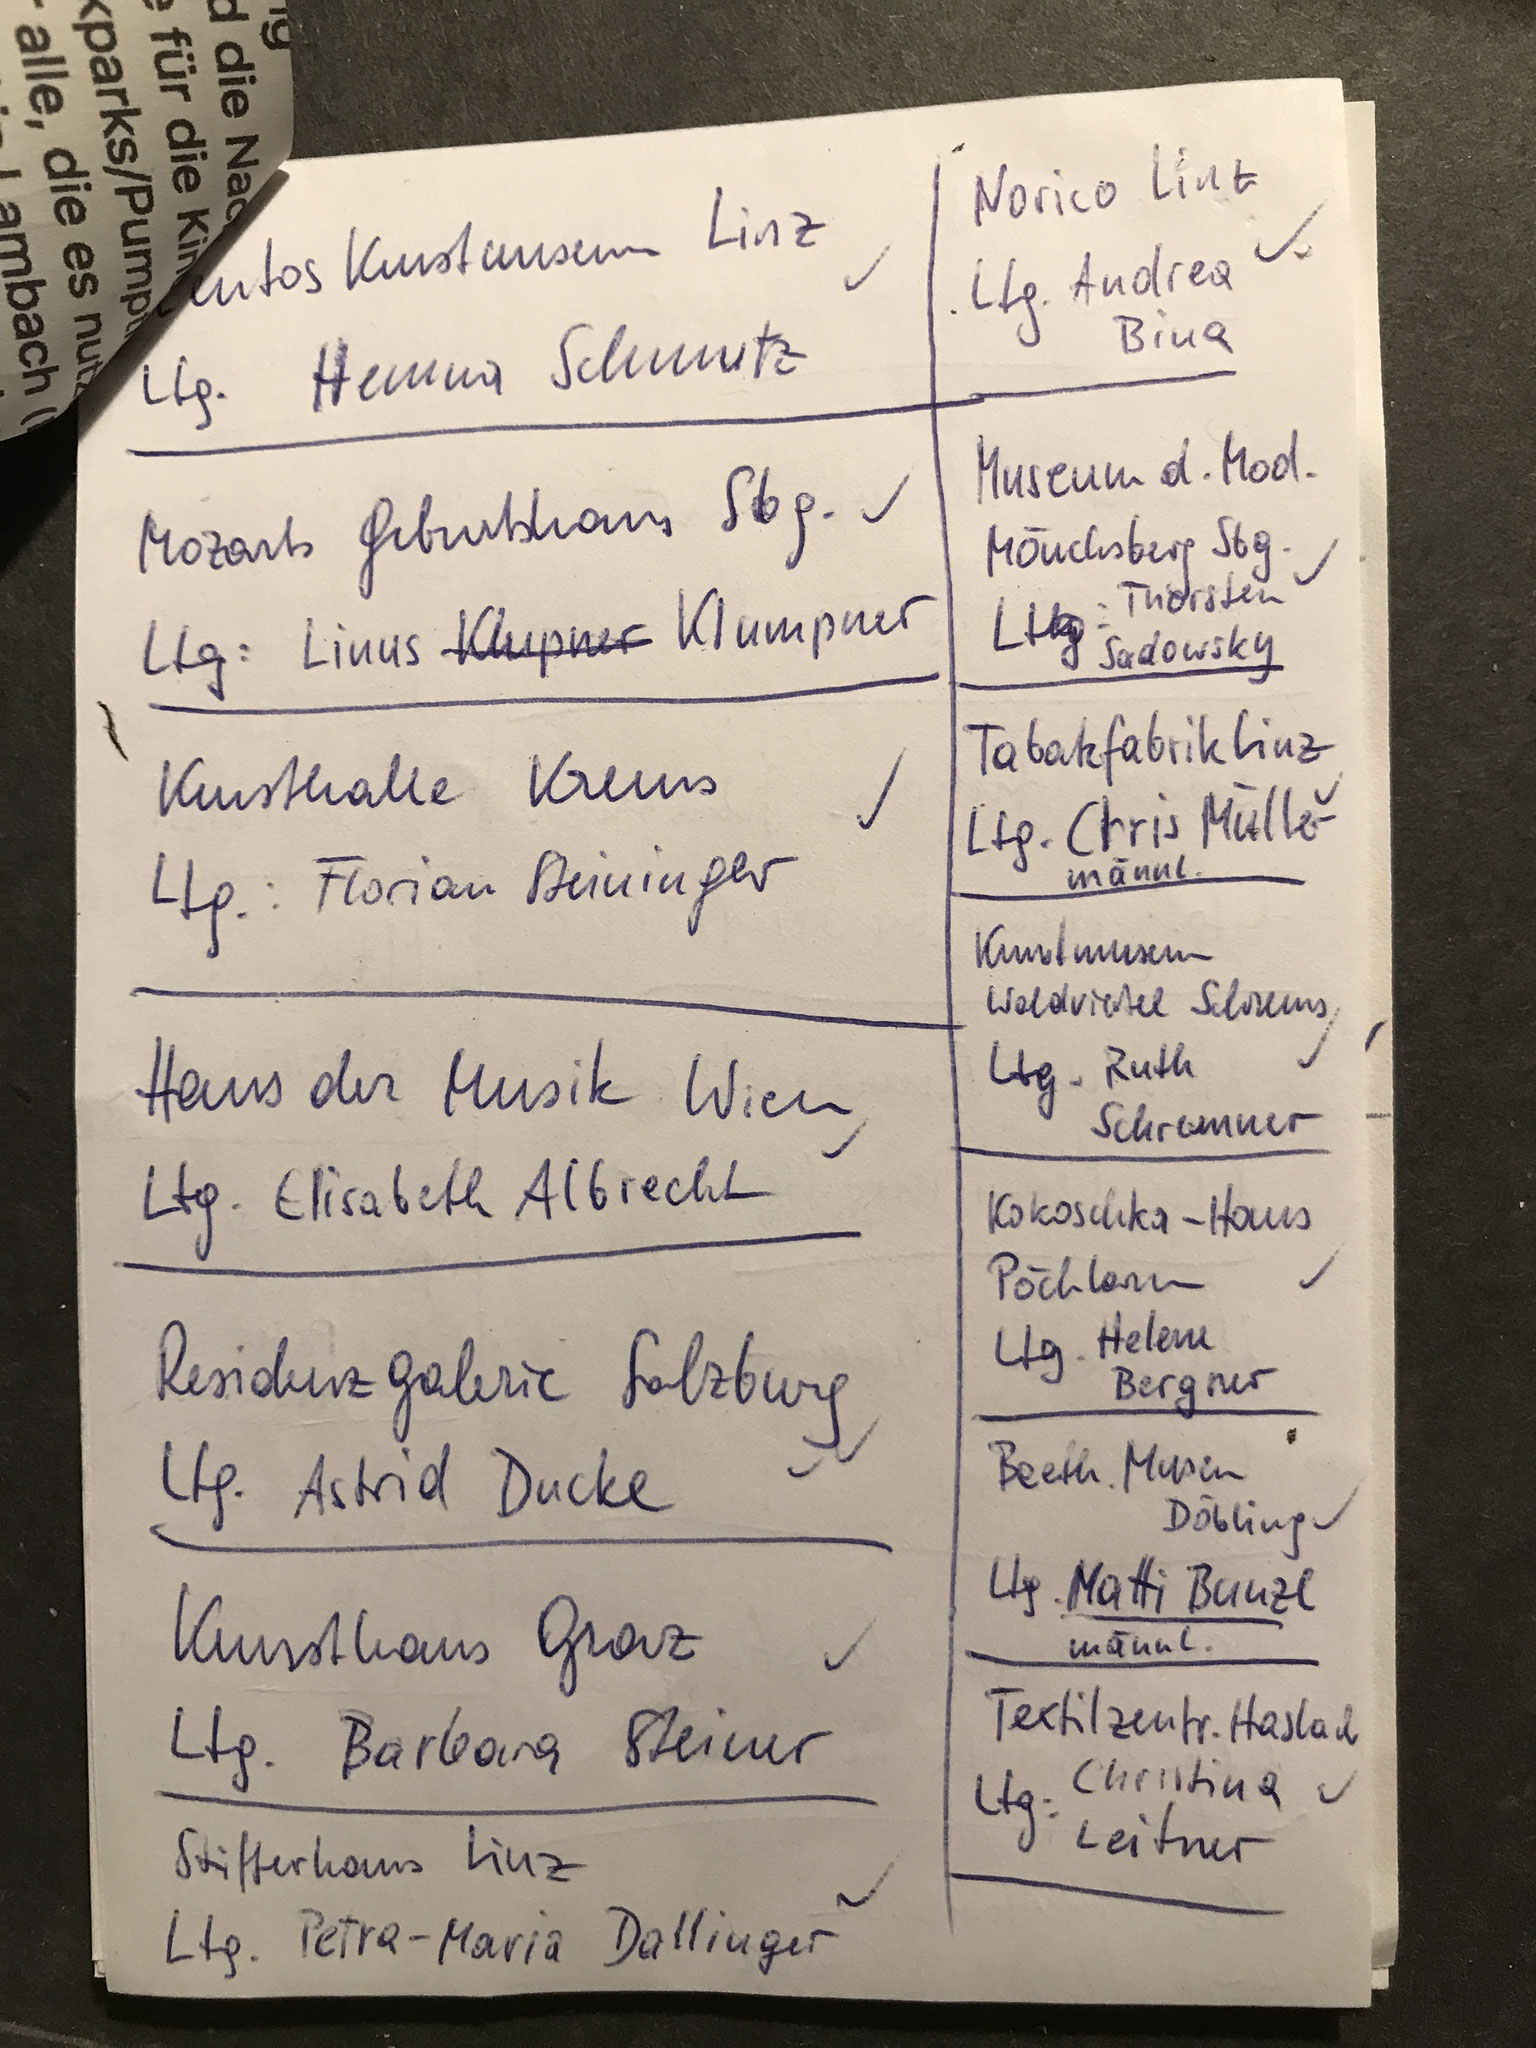 d die Nac
e für die Kin
xparks/Pumpt
r alle, die es nutz
Lambach (
entos Kunstmuseum Linz ✓
Ltg. Hemma Schmutz
Mozarts Geburtshaus Sbg. ✓
Ltg: Linus Klupner Klumpner
Kunsthalle Krems ✓
Ltg.: Florian Steininger
Haus der Musik Wien ✓
Ltg. Elisabeth Albrecht
Residenzgalerie Salzburg
Ltg. Astrid Ducke ✓
Kunsthaus Graz ✓
Ltg. Barbara Steiner
Stifterhaus Linz
Ltg. Petra-Maria Dallinger ✓
Norico Linz
Ltg. Andrea ✓
Bina
Museum d. Mod.
Mönchsberg Sbg. ✓
Ltg: Thorsten
Sadowsky
Tabakfabrik Linz
Ltg. Chris Müller ✓
männl.
Kunstmuseum
Waldviertel Schrems
Ltg. Ruth ✓
Schremmer
Kokoschka-Haus
Pöchlarn ✓
Ltg. Helene
Bergner
Beeth. Museum
Döbling ✓
Ltg. Matti Bunzl
männl.
Textilzentr. Haslach
Ltg: Christina ✓
Leitner